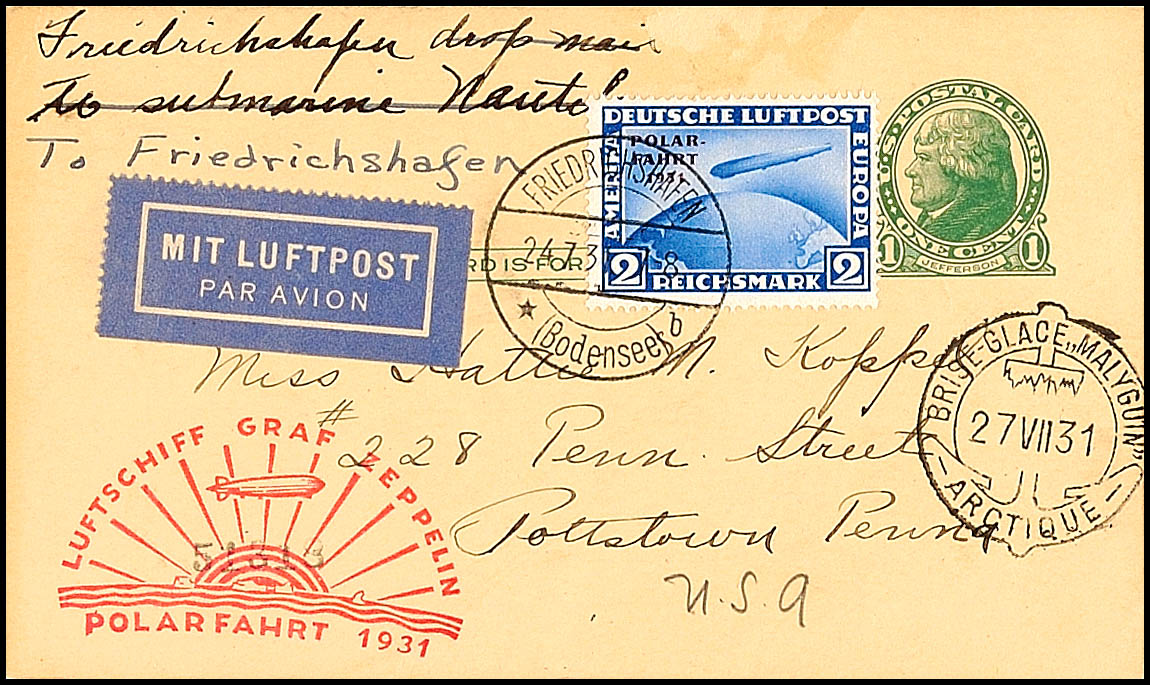 Friedrichshafen drop mail
to submarine Nautil
To Friedrichshafen
DEUTSCHE LUFTPOST
AMERIKA
EUROPA
POLAR-
FAHRT
1931
2 REICHSMARK 2
U.S. POSTAL CARD
1 ONE CENT 1
JEFFERSON
FRIEDRICHSHAFEN
24.7.3 7-8
(Bodensee) b
MIT LUFTPOST
PAR AVION
RD IS FOR
Miss Hattie M. Koppel
#228 Penn. Street
Pottstown Penna
U.S.A
BRISE-GLACE „MALYGUIN"
27 VII 31
-ARCTIQUE-
LUFTSCHIFF GRAF ZEPPELIN
POLARFAHRT 1931